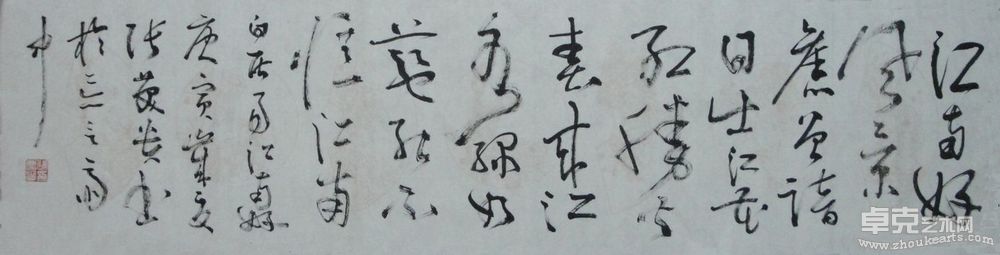 江南好
風景
舊曾諳
日出江花
紅勝火
春來江
水綠如
藍能不
憶江南
白居易江南好
庚寅夏
張書
於之齋
中
卓克艺术网
www.zhoukearts.com